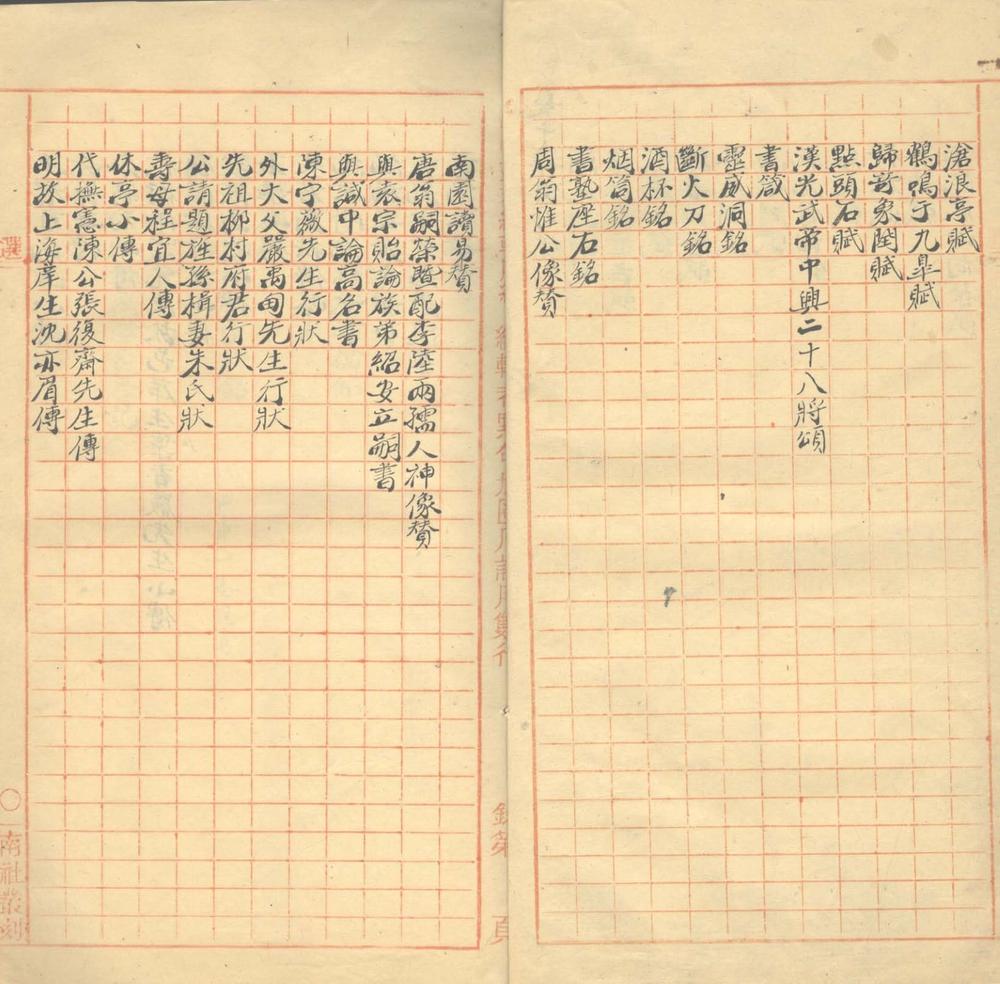 滄浪亭賦
鶴鳴于九臯賦
歸奇象閏賦
點頭石賦
漢光武帝中興二十八將頌
書箴
靈威洞銘
斷火刀銘
酒杯銘
烟筒銘
書塾座右銘
周翁惟公像贊
南園讀易贊
唐翁嗣榮暨配李陸兩孺人神像贊
與袁宗貽論族弟紹安立嗣書
與誠中論高名書
陳宁薇先生行狀
外大父嚴禹甸先生行狀
先祖柳村府君行狀
公請題旌孫楫妻朱氏狀
壽母程宜人傳
休亭小傳
代撫憲陳公張復齋先生傳
明故上海庠生沈亦眉傳
選
〇
南社叢刻
頁